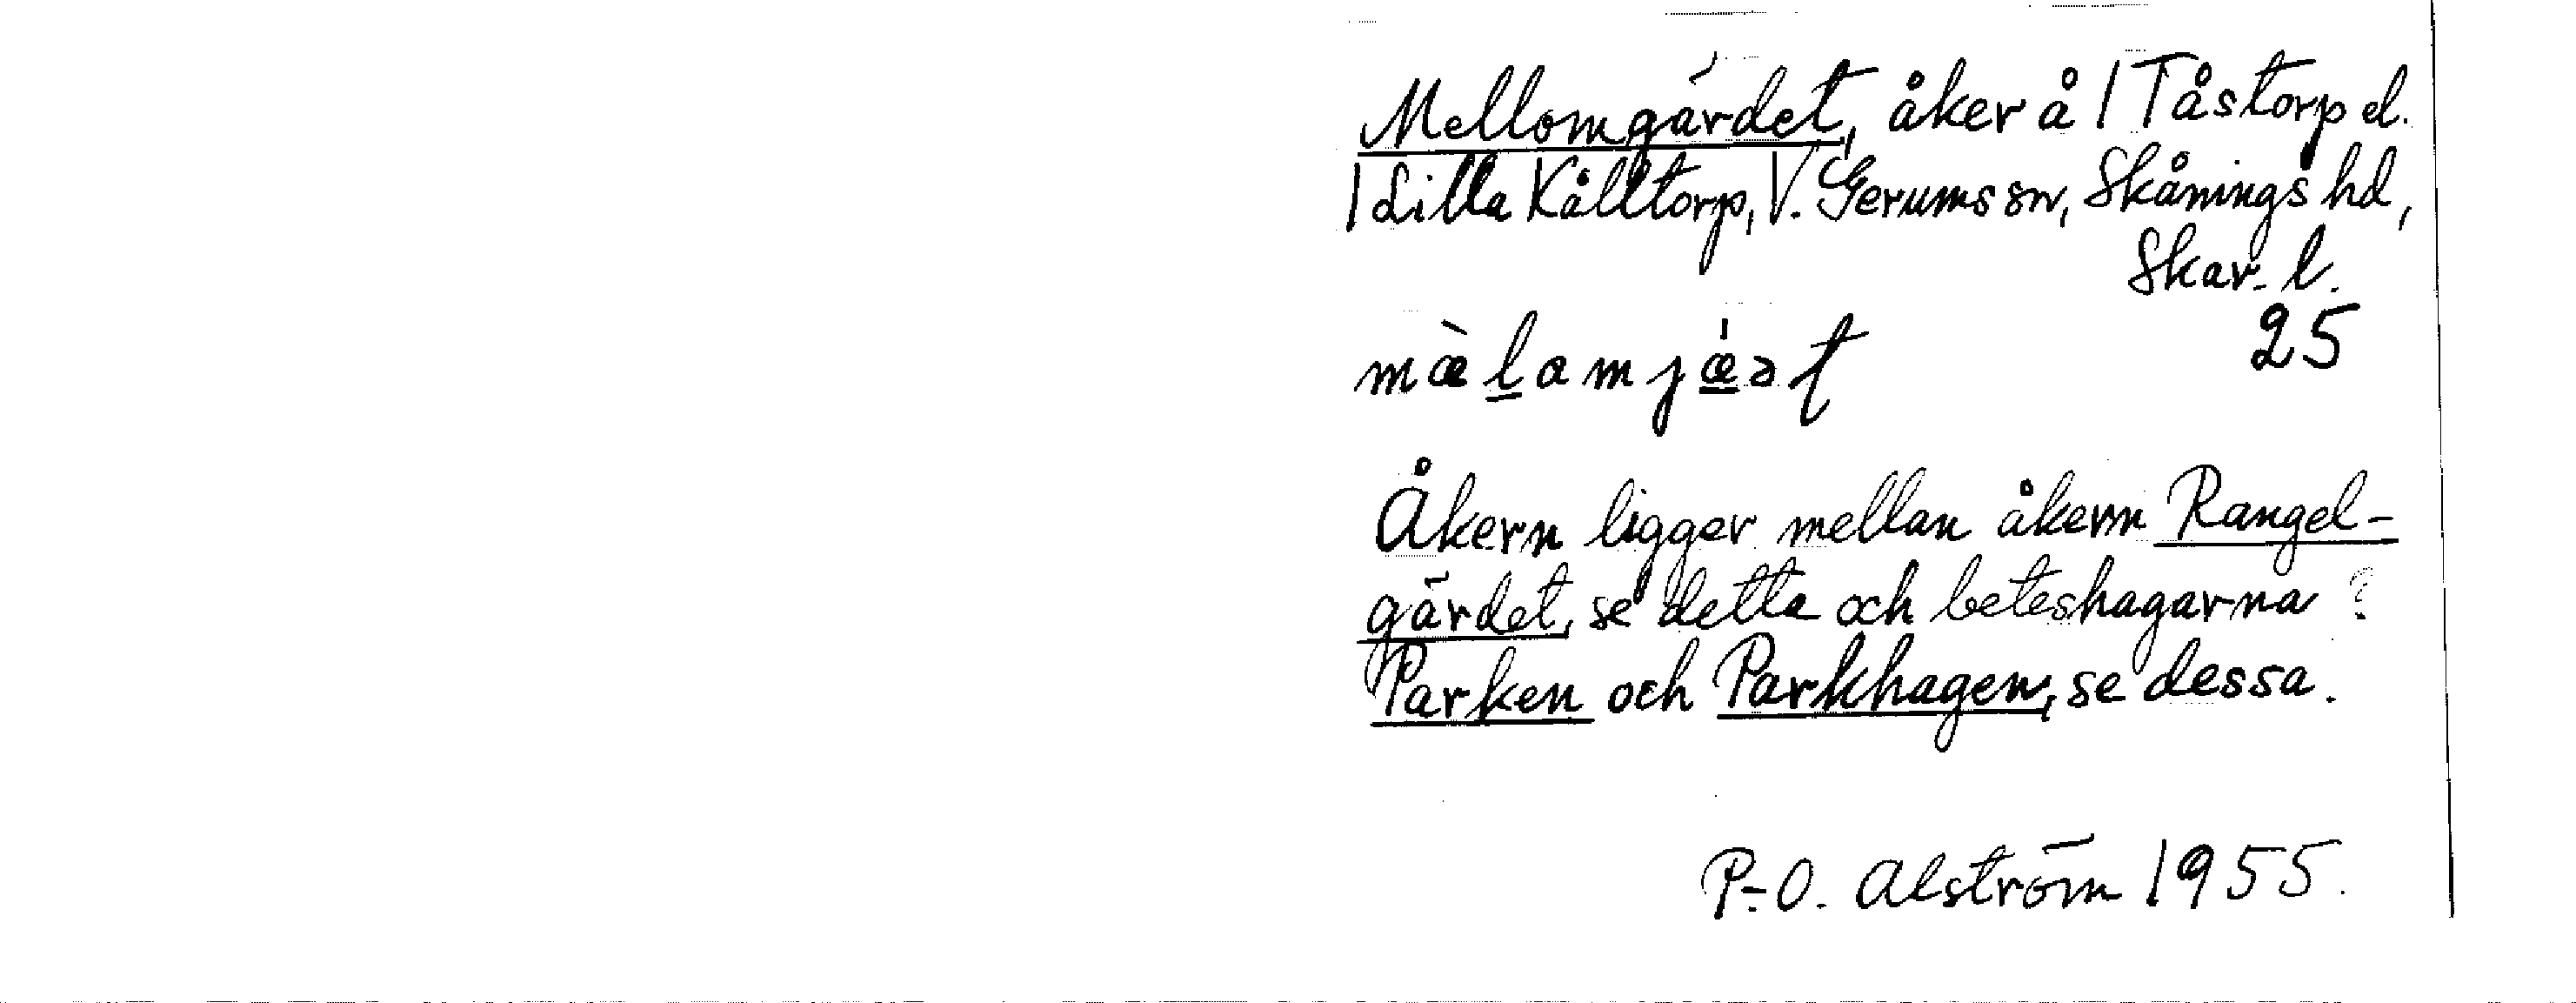 Mellomgärdet, åker å 1 Tåstorp el.
1 Lilla Kålltorp, V. Gerums sn, Skånings hd,
Skar. l.
25
mæ̀l̲amjǽ̲ət
Åkern ligger mellan åkern Rangel-
gärdet, se detta och beteshagarna ?
Parken och Parkhagen, se dessa.
P.-O. Alström 1955.